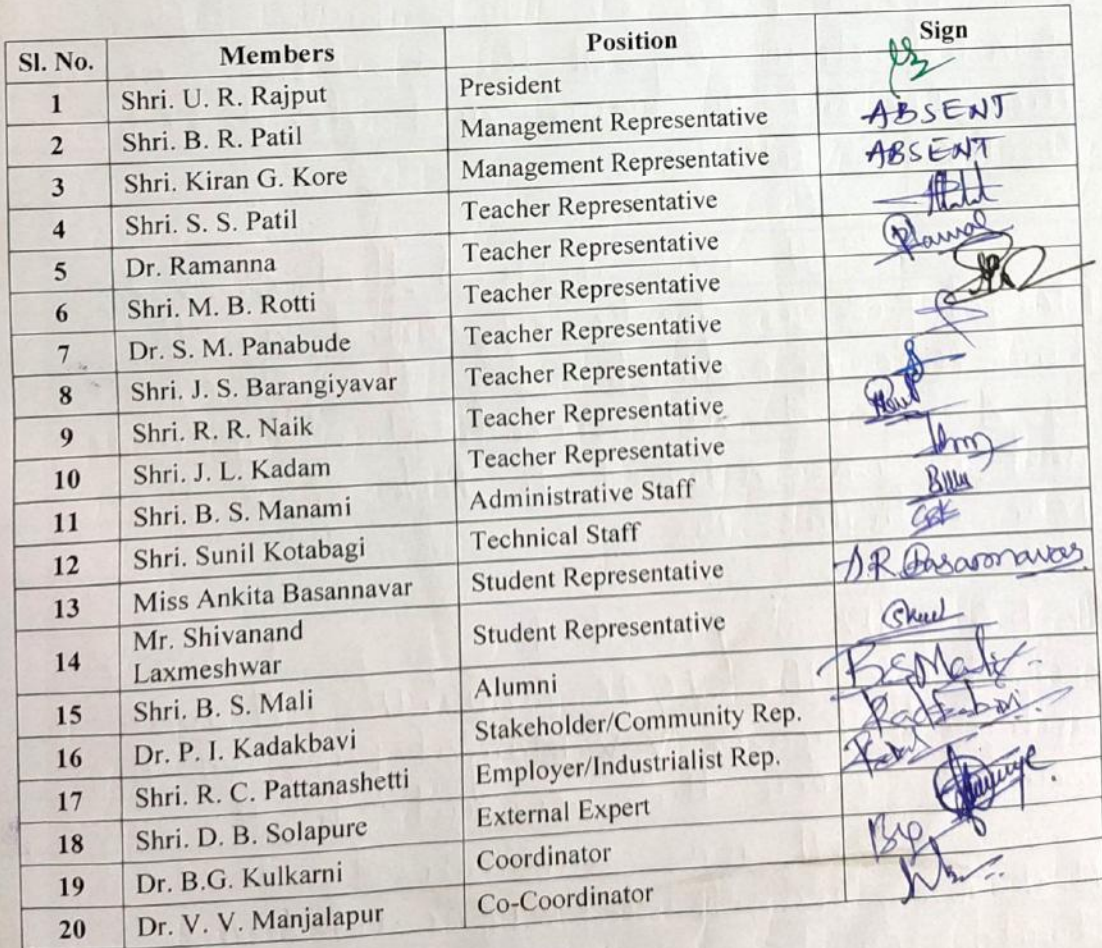 Sl. No. Members Position Sign
1 Shri. U. R. Rajput President
2 Shri. B. R. Patil Management Representative ABSENT
3 Shri. Kiran G. Kore Management Representative ABSENT
4 Shri. S. S. Patil Teacher Representative
5 Dr. Ramanna Teacher Representative
6 Shri. M. B. Rotti Teacher Representative
7 Dr. S. M. Panabude Teacher Representative
8 Shri. J. S. Barangiyavar Teacher Representative
9 Shri. R. R. Naik Teacher Representative
10 Shri. J. L. Kadam Teacher Representative
11 Shri. B. S. Manami Administrative Staff
12 Shri. Sunil Kotabagi Technical Staff
13 Miss Ankita Basannavar Student Representative
14 Mr. Shivanand Student Representative
Laxmeshwar
15 Shri. B. S. Mali Alumni BSMali
16 Dr. P. I. Kadakbavi Stakeholder/Community Rep.
17 Shri. R. C. Pattanashetti Employer/Industrialist Rep.
18 Shri. D. B. Solapure External Expert
19 Dr. B.G. Kulkarni Coordinator
20 Dr. V. V. Manjalapur Co-Coordinator